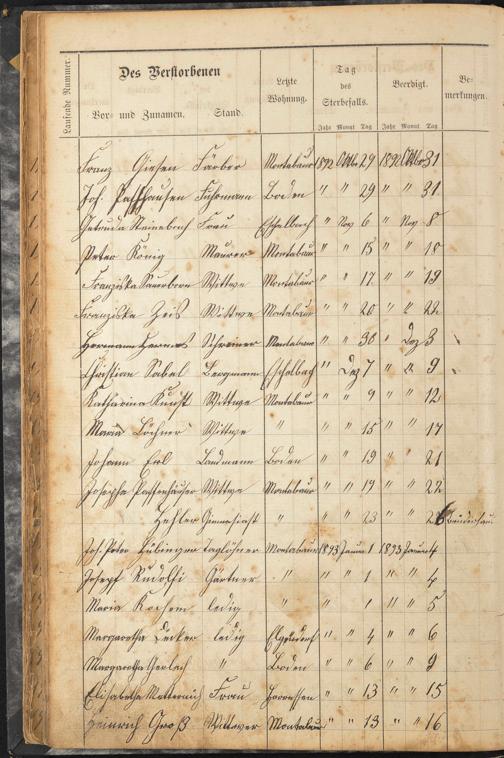 Laufende Nummer.
Des Verstorbenen
Vor- und Zunamen. Stand.
Letzte Wohnung.
Tag des Sterbefalls.
Jahr Monat Tag
Beerdigt.
Jahr Monat Tag
Bemerkungen.
Franz Giesen Färber Montabaur 1892 Oktbr 29 1892 Oktbr 31
Jos. Fuhrmann Boden " " 29 " " 31
Frau Eschelbach " Nov 6 " Nov 8
Peter König Maurer Montabaur " " 15 " " 18
Franziska Sauerborn Wittwe Montabaur " " 17 " " 19
Franziska Zeis Wittwe Montabaur " " 20 " " 22
Hermann Hermes Schreiner Montabaur " " 30 " Dez 3
Christian Sabel Bergmann Eschelbach " Dez 7 " " 9
Katharina Kunst Wittwe Montabaur " " 9 " " 12
Maria Wittwe " " " 15 " " 17
Johann Landmann Boden " " 19 " " 21
Josepha Wittwe Montabaur " " 19 " " 22
" " " 23 " "
Jos. Peter Taglöhner Montabaur 1893 Januar 1 1893 Januar 4
Josepf Rudolfi Gärtner " " " 1 " " 4
Maria Kochem ledig " " " 1 " " 5
Margaretha Decker ledig Elgendorf " " 4 " " 6
Margaretha Gerlach " Boden " " 6 " " 9
Elisabetha Metternich Frau Horressen " " 13 " " 15
Heinrich Groß Wittwer Montabaur " " 13 " " 16